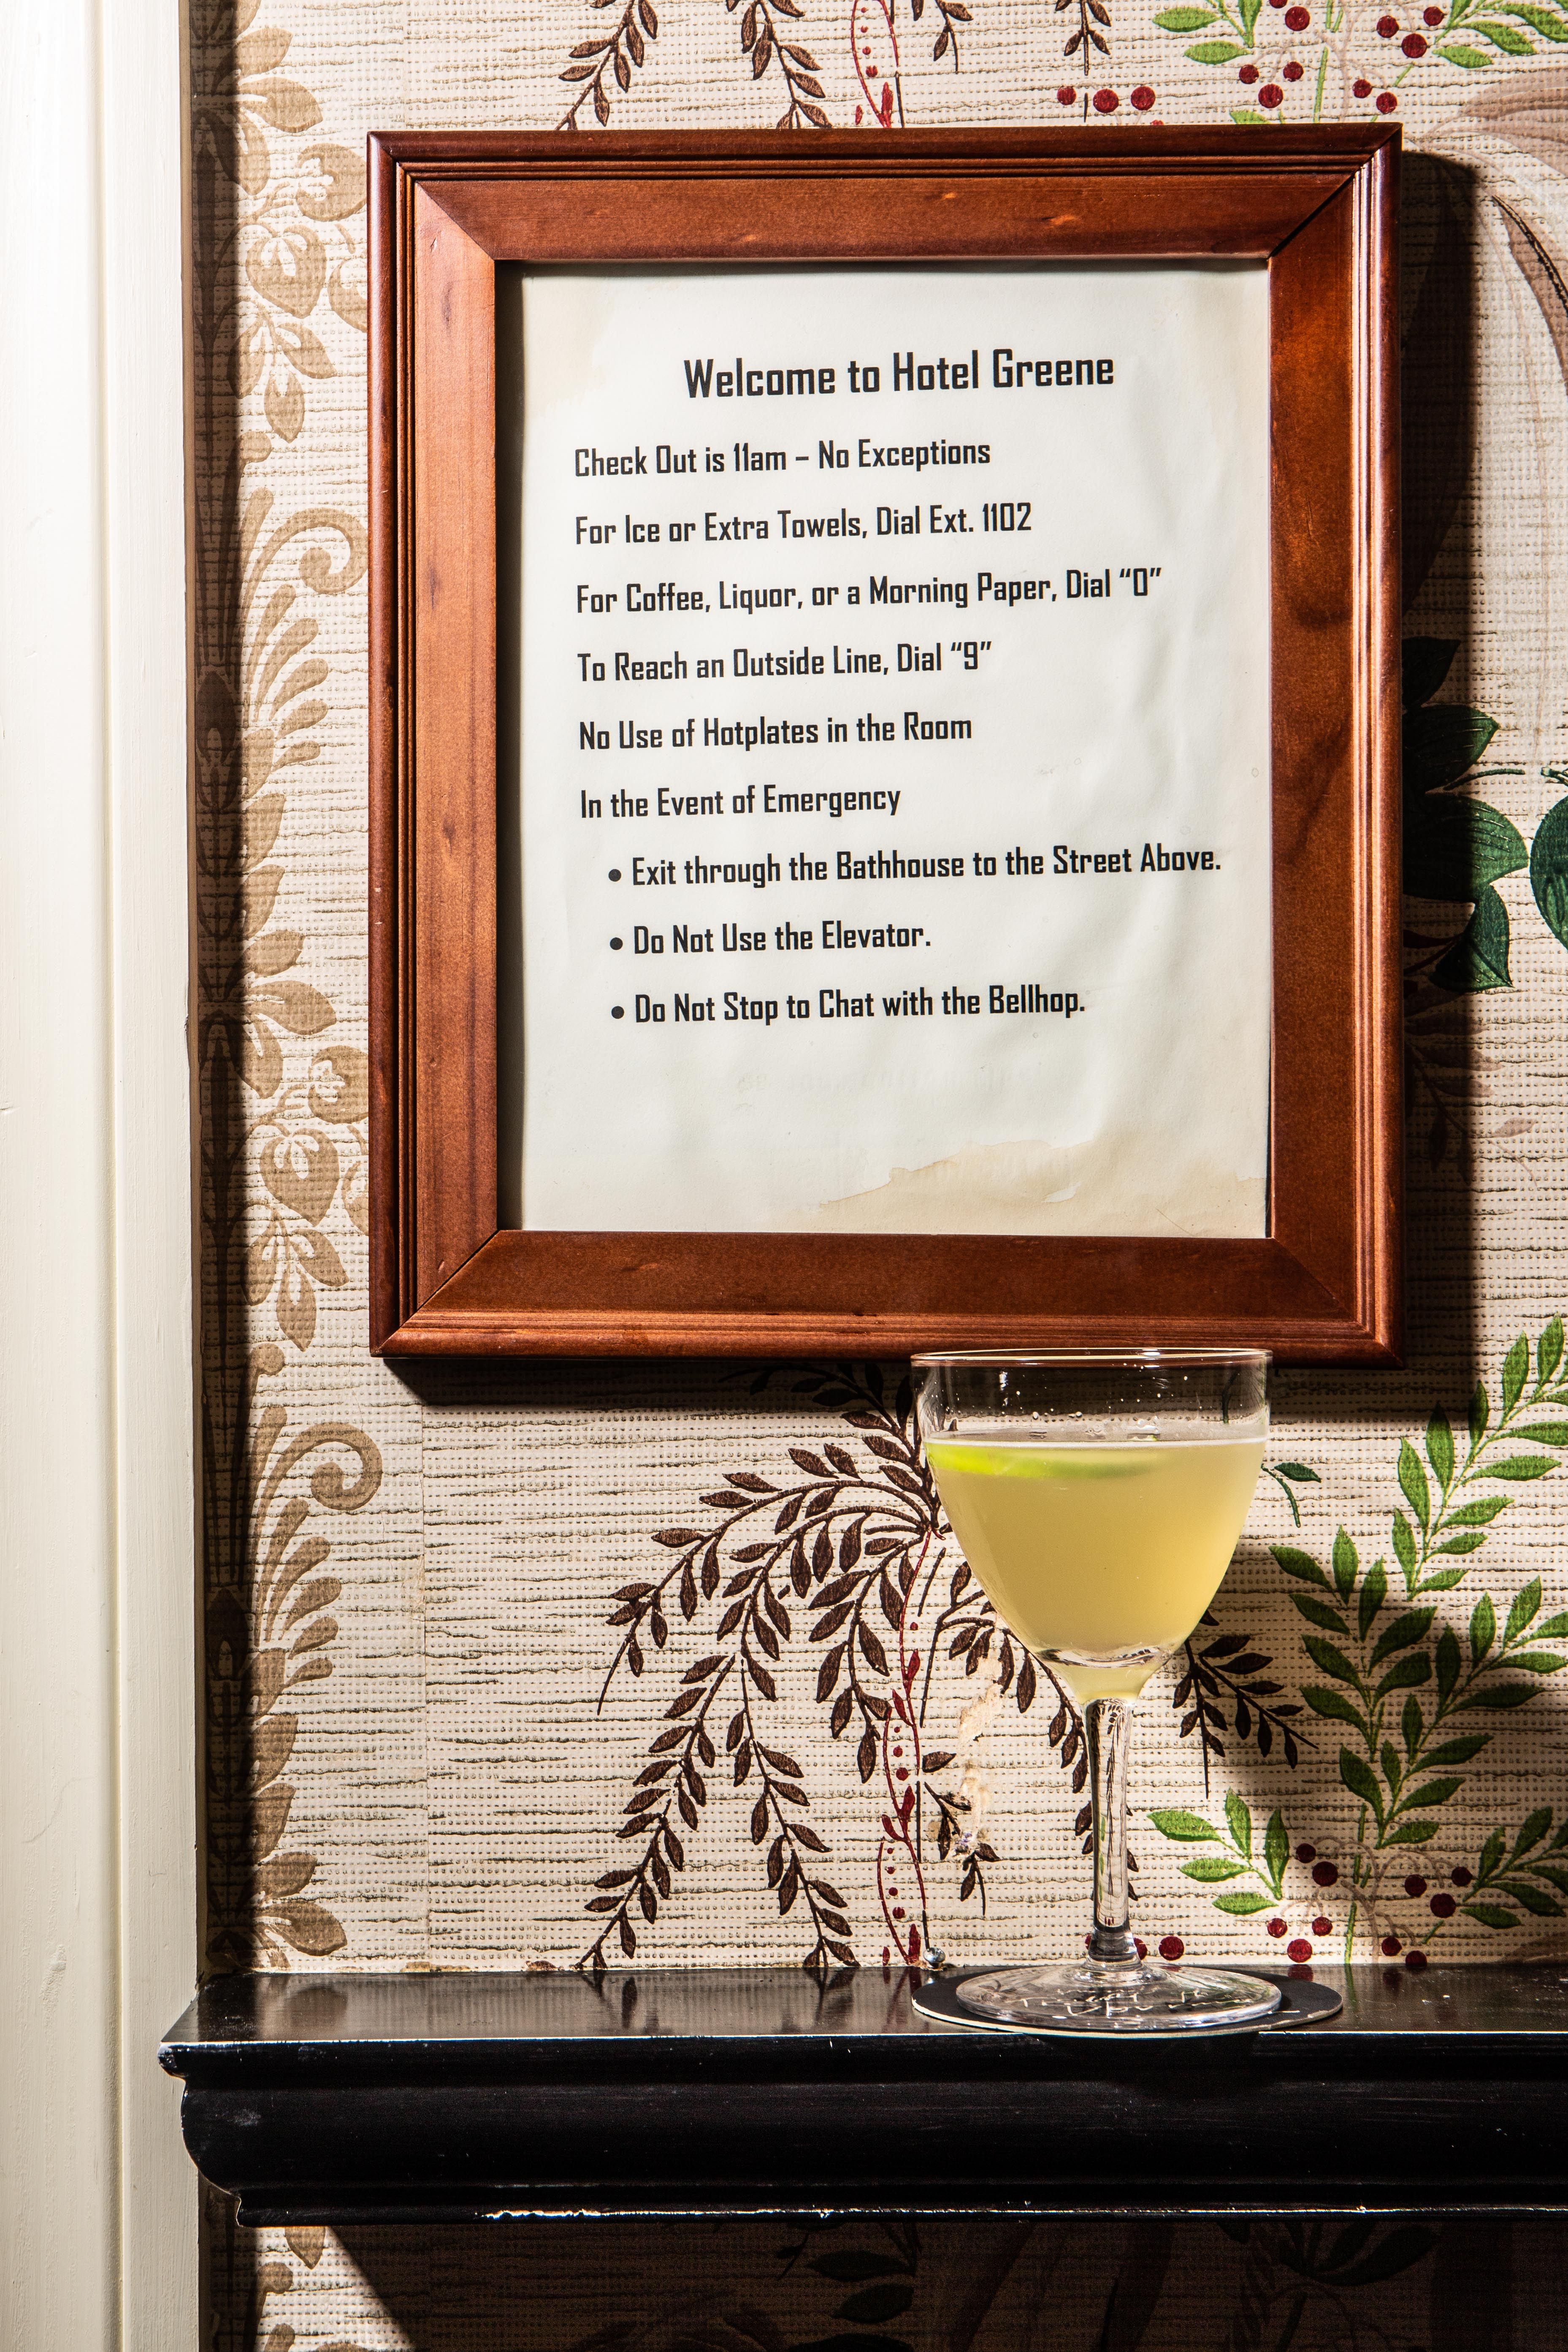 Welcome to Hotel Greene
Check Out is 11am – No Exceptions
For Ice or Extra Towels, Dial Ext. 1102
For Coffee, Liquor, or a Morning Paper, Dial “0”
To Reach an Outside Line, Dial “9”
No Use of Hotplates in the Room
In the Event of Emergency
• Exit through the Bathhouse to the Street Above.
• Do Not Use the Elevator.
• Do Not Stop to Chat with the Bellhop.